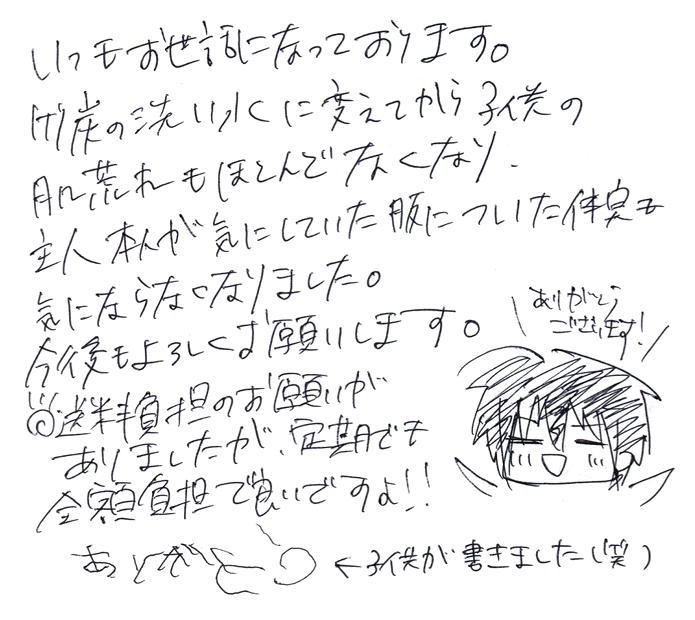 いつもお世話になっております。
竹炭の洗い水に変えてから子供の
肌荒れもほとんどなくなり、
主人本人が気にしていた服についた体臭も
気にならなくなりました。
今後もよろしくお願いします。
ありがとう
ございます!
送料負担のお願いが
ありましたが、定期でも
全額負担で良いですよ!!
ありがとう
←子供が書きました(笑)